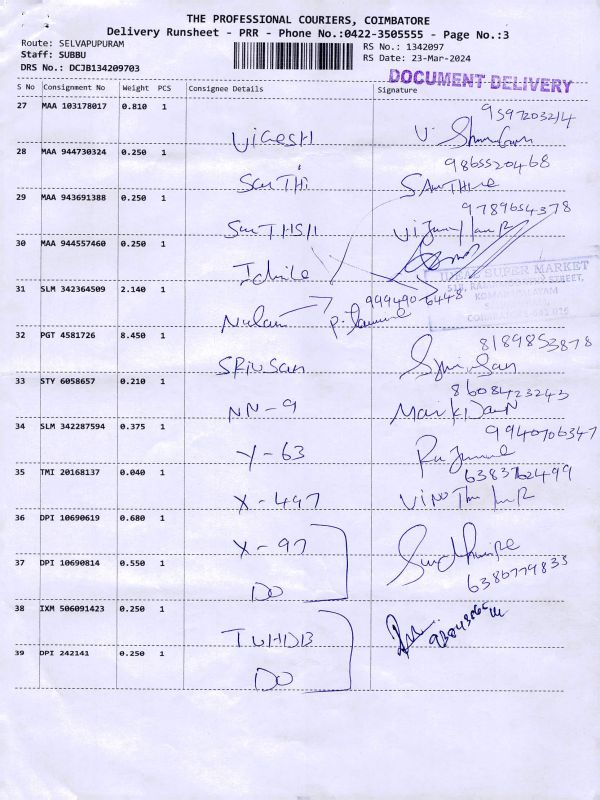 THE PROFESSIONAL COURIERS, COIMBATORE
Delivery Runsheet - PRR - Phone No.:0422-3505555 - Page No.:3
Route: SELVAPUPURAM RS No.: 1342097
Staff: SUBBU RS Date: 23-Mar-2024
DRS No.: DCJB134209703
DOCUMENT DELIVERY
S No Consignment No Weight PCS Consignee Details Signature
27 MAA 103178017 0.810 1
28 MAA 944730324 0.250 1
9865520468
29 MAA 943691388 0.250 1
9789654378
30 MAA 944557460 0.250 1
SUPER MARKET
31 SLM 342364509 2.140 1
9994906448
32 PGT 4581726 8.450 1
8189853878
SRIUSAN
33 STY 6058657 0.210 1
8608423243
NN-9
34 SLM 342287594 0.375 1
9940706347
Y-63
35 TMI 20168137 0.040 1
X-497
36 DPI 10690619 0.680 1
X-97
37 DPI 10690814 0.550 1
6380779835
DO
38 IXM 506091423 0.250 1
39 DPI 242141 0.250 1
DO